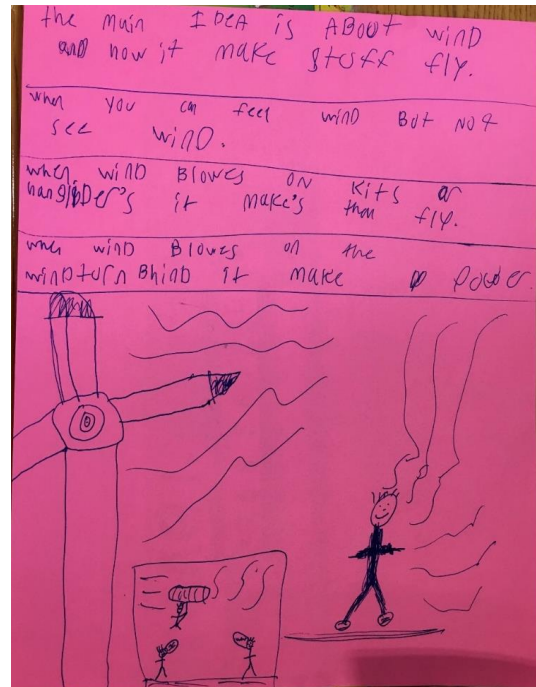 the main IDEA is ABOUT winD
and how it make stuff fly.
when you can feel winD But not
see winD.
when winD Blowes on Kits or
hangliDer's it make's them fly.
when winD Blowes on the
winDturn Bhind it make power.